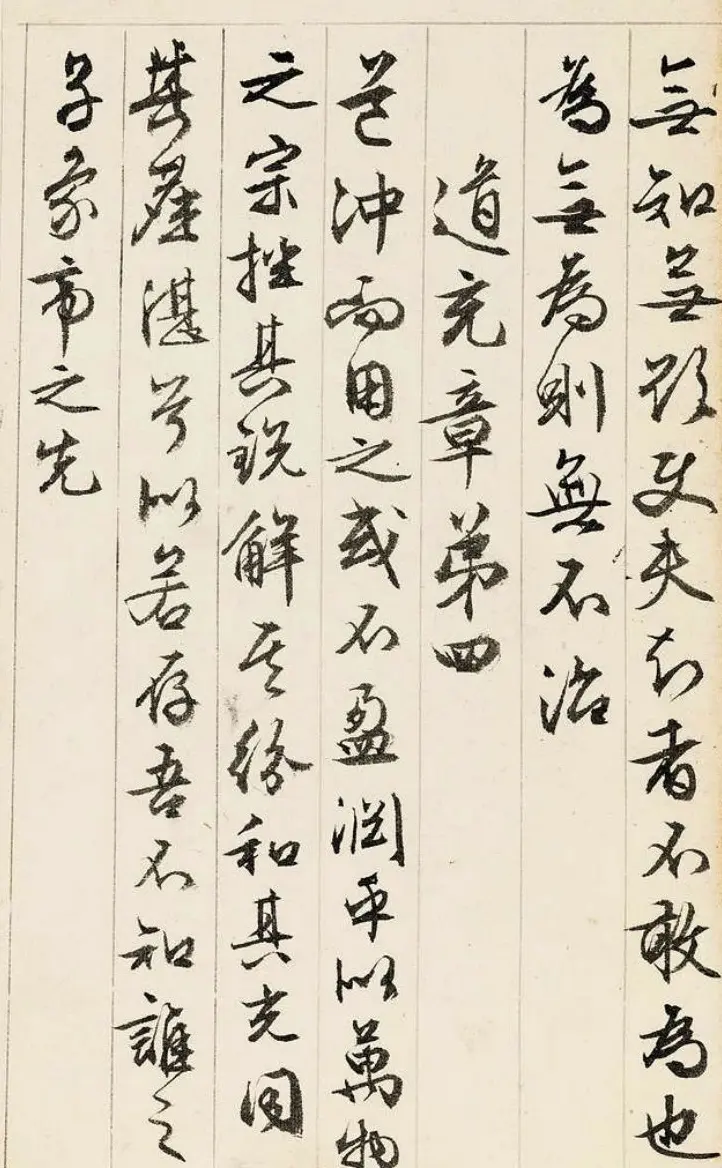 無知無欲使夫知者不敢為也
為無為則無不治
道充章第四
道沖而用之或不盈淵乎似萬物
之宗挫其銳解其紛和其光同
其塵湛兮似若存吾不知誰之
子象帝之先